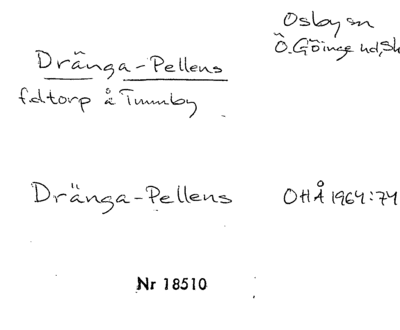 Osby sn
Ö. Göinge hd, Sk
Dränga-Pellens
f.d torp å Tunnby
Dränga-Pellens OHÅ 1964:74
Nr 18510